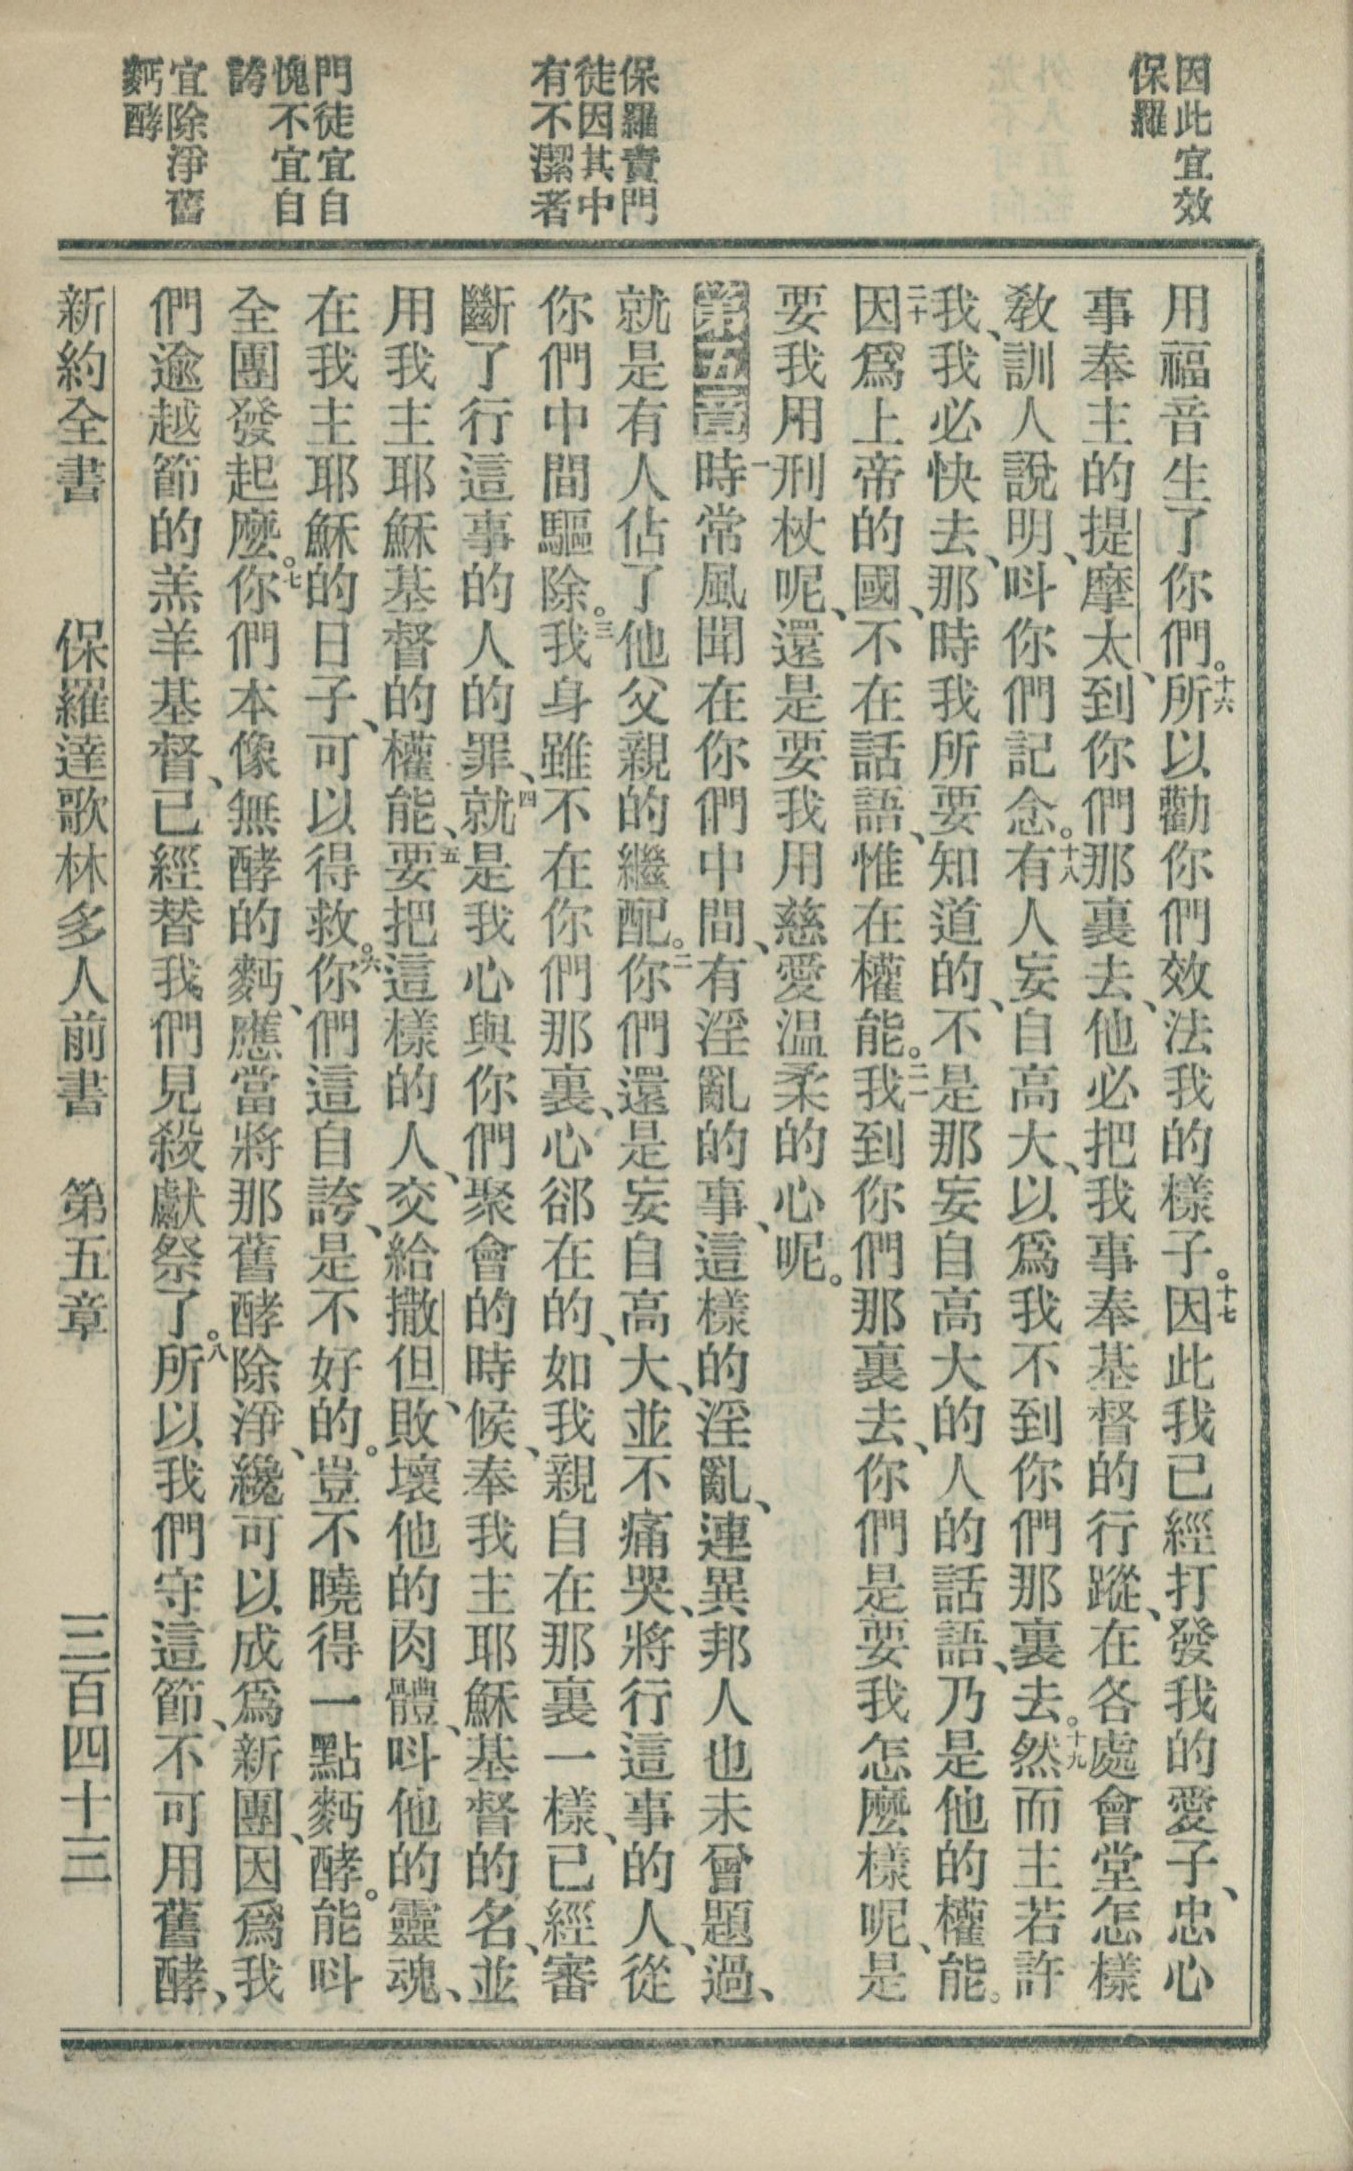 因此宜效
保羅
保羅責門
徒因其中
有不潔者
門徒宜自
愧不宜自
誇
宜除淨舊
麪酵
用福音生了你們。十六所以勸你們效法我的樣子。十七因此我已經打發我的愛子、忠心
事奉主的提摩太、到你們那裏去、他必把我事奉基督的行蹤、在各處會堂怎樣
教訓人說明、呌你們記念。十八有人妄自高大、以爲我不到你們那裏去。十九然而主若許
我、我必快去、那時我所要知道的、不是那妄自高大的人的話語、乃是他的權能。
二十因爲上帝的國、不在話語、惟在權能。二一我到你們那裏去、你們是要我怎麼樣呢、是
要我用刑杖呢、還是要我用慈愛温柔的心呢。
第五章 一時常風聞在你們中間、有淫亂的事、這樣的淫亂、連異邦人也未曾題過、
就是有人佔了他父親的繼配。二你們還是妄自高大、並不痛哭、將行這事的人、從
你們中間驅除。三我身雖不在你們那裏、心郤在的、如我親自在那裏一樣、已經審
斷了行這事的人的罪、四就是我心與你們聚會的時候、奉我主耶穌基督的名、並
用我主耶穌基督的權能、五要把這樣的人、交給撒但、敗壞他的肉體、呌他的靈魂、
在我主耶穌的日子、可以得救。六你們這自誇、是不好的。豈不曉得一點麪酵。能呌
全團發起麼。七你們本像無酵的麪、應當將那舊酵除淨、纔可以成爲新團、因爲我
們逾越節的羔羊基督、已經替我們見殺獻祭了。八所以我們守這節、不可用舊酵、
新約全書 保羅達歌林多人前書 第五章 三百四十三